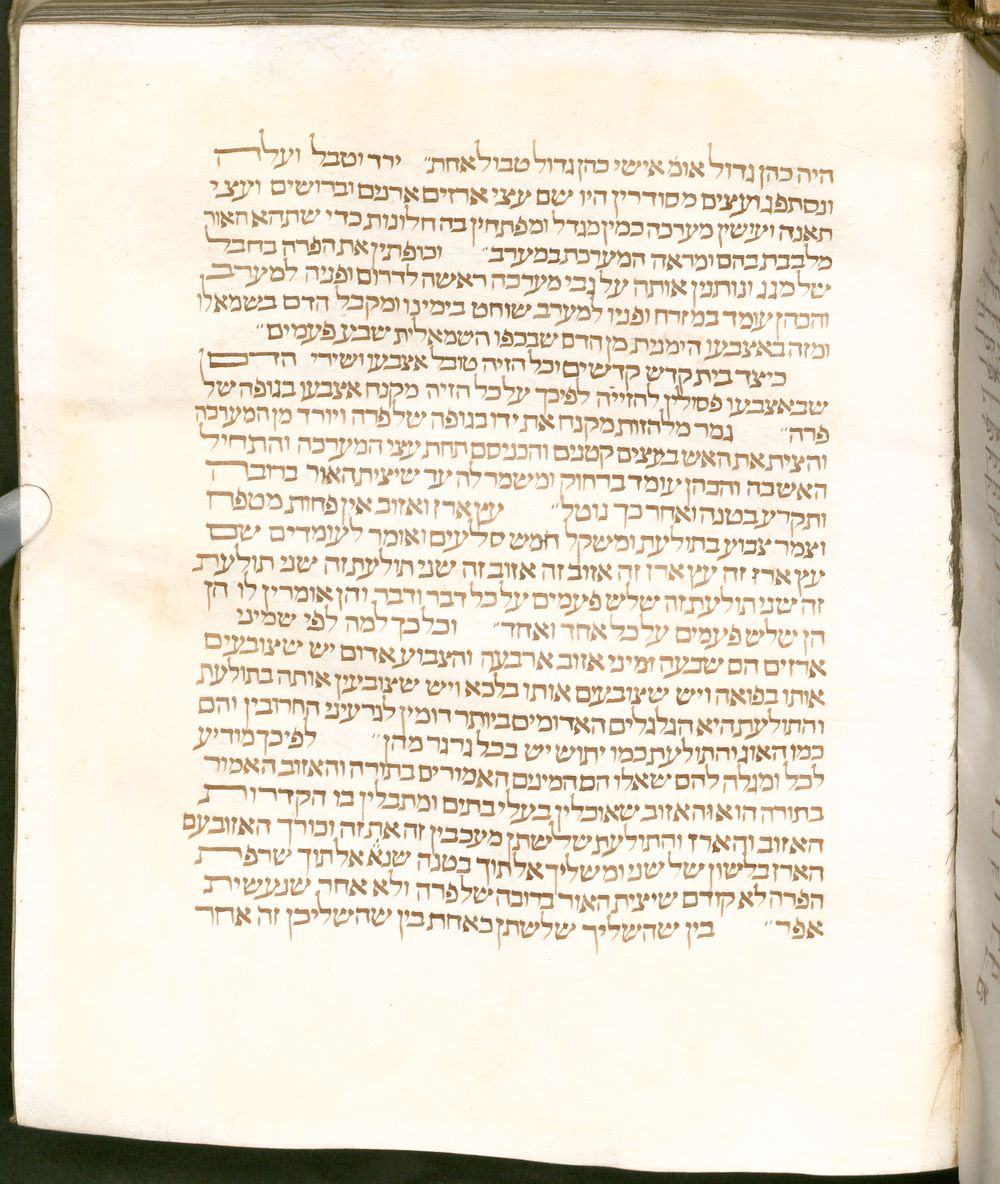 היה כהן גדול אומ׳ אישי כהן גדול טבול אחת״ ירד וטבל ועלה
ונסתפג ועצים מסודרין היו שם עצי ארזים ארנים וברושים ועצי
תאנה ועושין מערכה כמין מגדל ומפתחין בה חלונות כדי שתהא האור
מלבבת בהם ומראה המערכת במערב״ וכופתין את הפרה בחבל
של מגג ונותנין אותה על גבי מערכה ראשה לדרום ופניה למערב
והכהן עומד במזרח ופניו למערב שוחט בימינו ומקבל הדם בשמאלו
ומזה באצבעו הימנית מן הדם שבכפו השמאלית שבע פעמים״
כיצד בית קדש קדשים וכל הזיה טובל אצבעו ושירי הדם
שבאצבעו פסולין להזייה לפיכך על כל הזיה מקנח אצבעו בגופה של
פרה״ גמר מלהזות מקנח את ידו בגופה של פרה ויורד מן המערכה
והצית את האש בעצים קטנים והכניסם תחת עצי המערכה והתחיל
האש בה והכהן עומד ברחוק ומשמר לה עד שיצית האור ברובה
ותקרע בטנה ואחר כך נוטל״ עץ ארז ואזוב אין פחות מטפח
וצמר צבוע בתולעת ומשקל חמש סלעים ואומר לעומדים שם
עץ ארז זה עץ ארז זה אזוב זה אזוב זה שני תולעת זה שני תולעת
זה שני תולעת זה שלש פעמים על כל דבר ודבר והן אומרין לו הן
הן שלש פעמים על כל אחד ואחד״ וכל כך למה לפי שמיני
ארזים הם שבעה ומיני אזוב ארבעה והצבוע אדום יש שצובעים
אותו בפואה ויש שצובעם אותו בלכא ויש שצובעין אותה בתולעת
והתולעת היא הגלגלים האדומים ביותר דומין לגרעיני החרובין והם
כמו האוג והתולעת כמו יתוש יש בכל גרגר מהן״ לפיכך מודיע
לכל ומגלה להם שאלו הם המינים האמורים בתורה והאזוב האמור
בתורה הוא האזוב שאוכלין בעלי בתים ומתבלין בו הקדרות
האזוב והארז והתולעת שלשתן מעכבין זה את זה וכורך האזוב עם
הארז בלשון של שני ומשליך אל תוך בטנה שנא׳ אל תוך שרפת
הפרה לא קודם שיצית האור ברובה של פרה ולא אחר שנעשית
אפר״ בין שהשליך שלשתן כאחת בין שהשליכן זה אחר